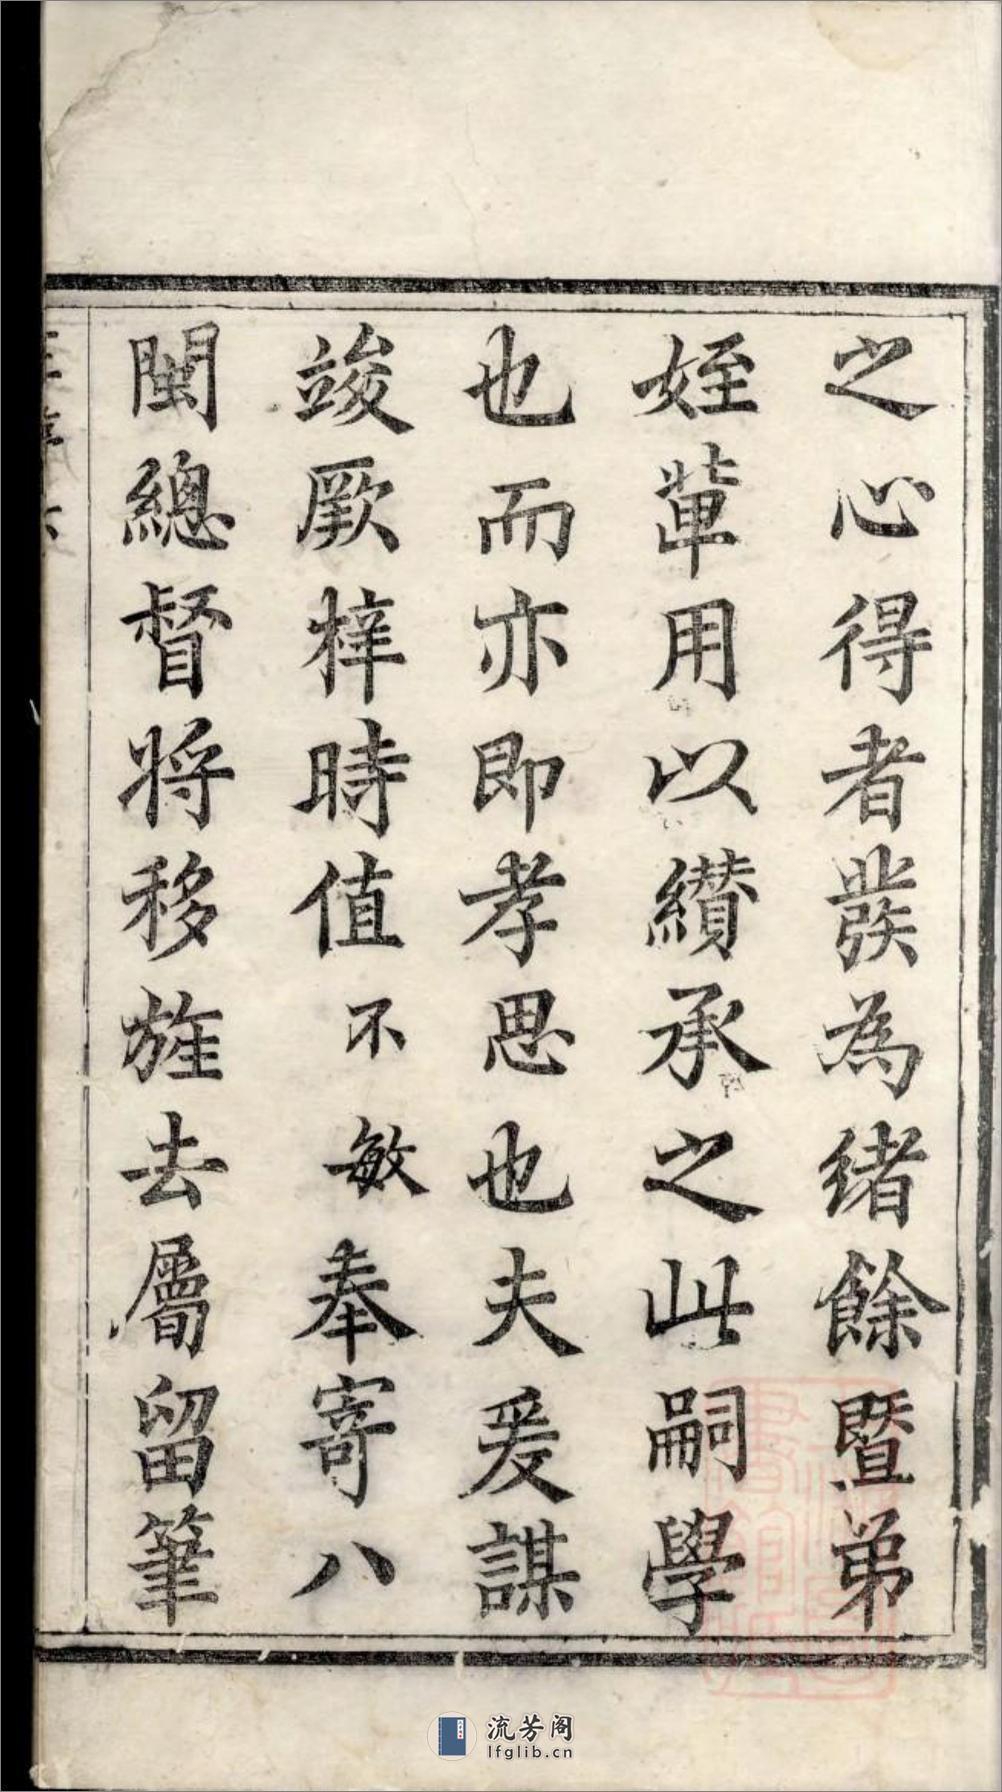 之心得者發為緒餘暨弟
姪輩用以纘承之此嗣學
也而亦即孝思也夫爰謀
竣厥梓時值不敏奉寄八
閩總督將移旌去屬留筆
流芳阁
lfglib.cn